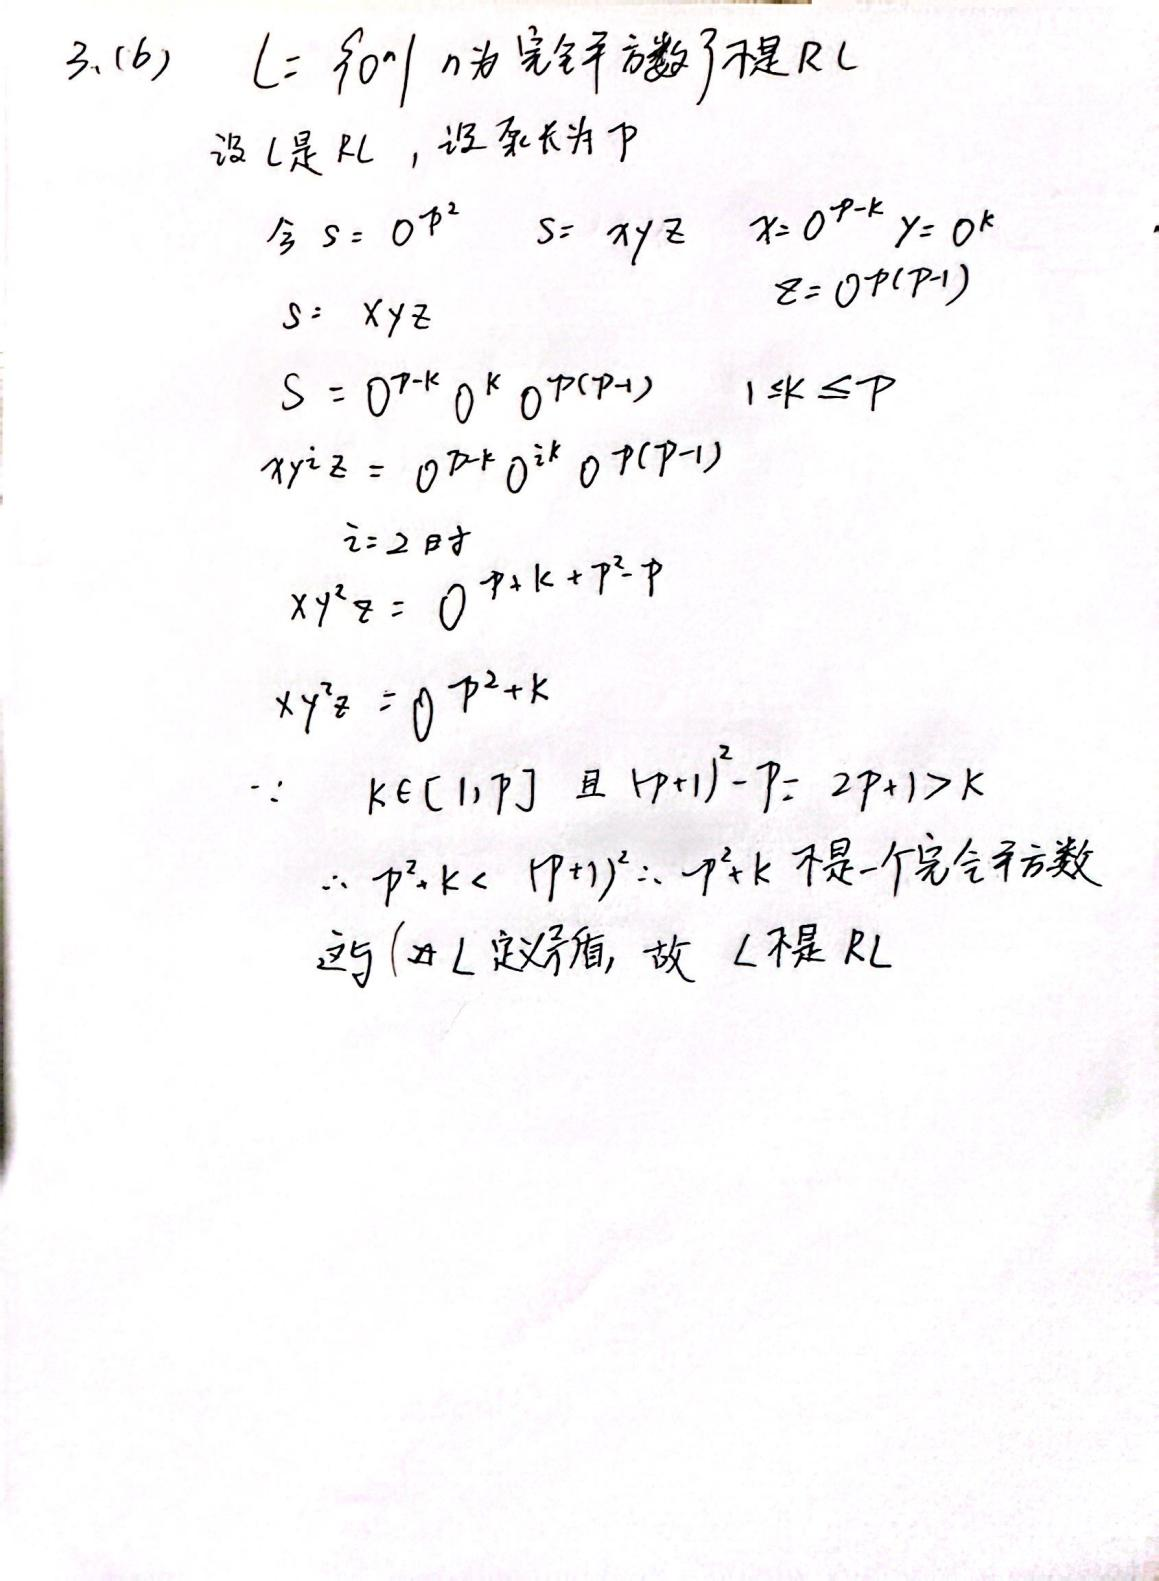 3.(b) L = {0ⁿ | n为完全平方数}不是RL
设L是RL，设泵长为P
令 s = 0^{p²} s = xyz x = 0^{p-k} y = 0^k
z = 0^{p(p-1)}
s = xyz
S = 0^{p-k} 0^k 0^{p(p-1)} 1 ≤ k ≤ p
xy^i z = 0^{p-k} 0^{ik} 0^{p(p-1)}
i = 2 时
xy²z = 0^{p+k+p²-p}
xy²z = 0^{p²+k}
∵ k∈[1,p] 且 (p+1)²-p = 2p+1 > k
∴ p²+k < (p+1)² ∴ p²+k 不是一个完全平方数
这与 L 定义矛盾, 故 L不是 RL